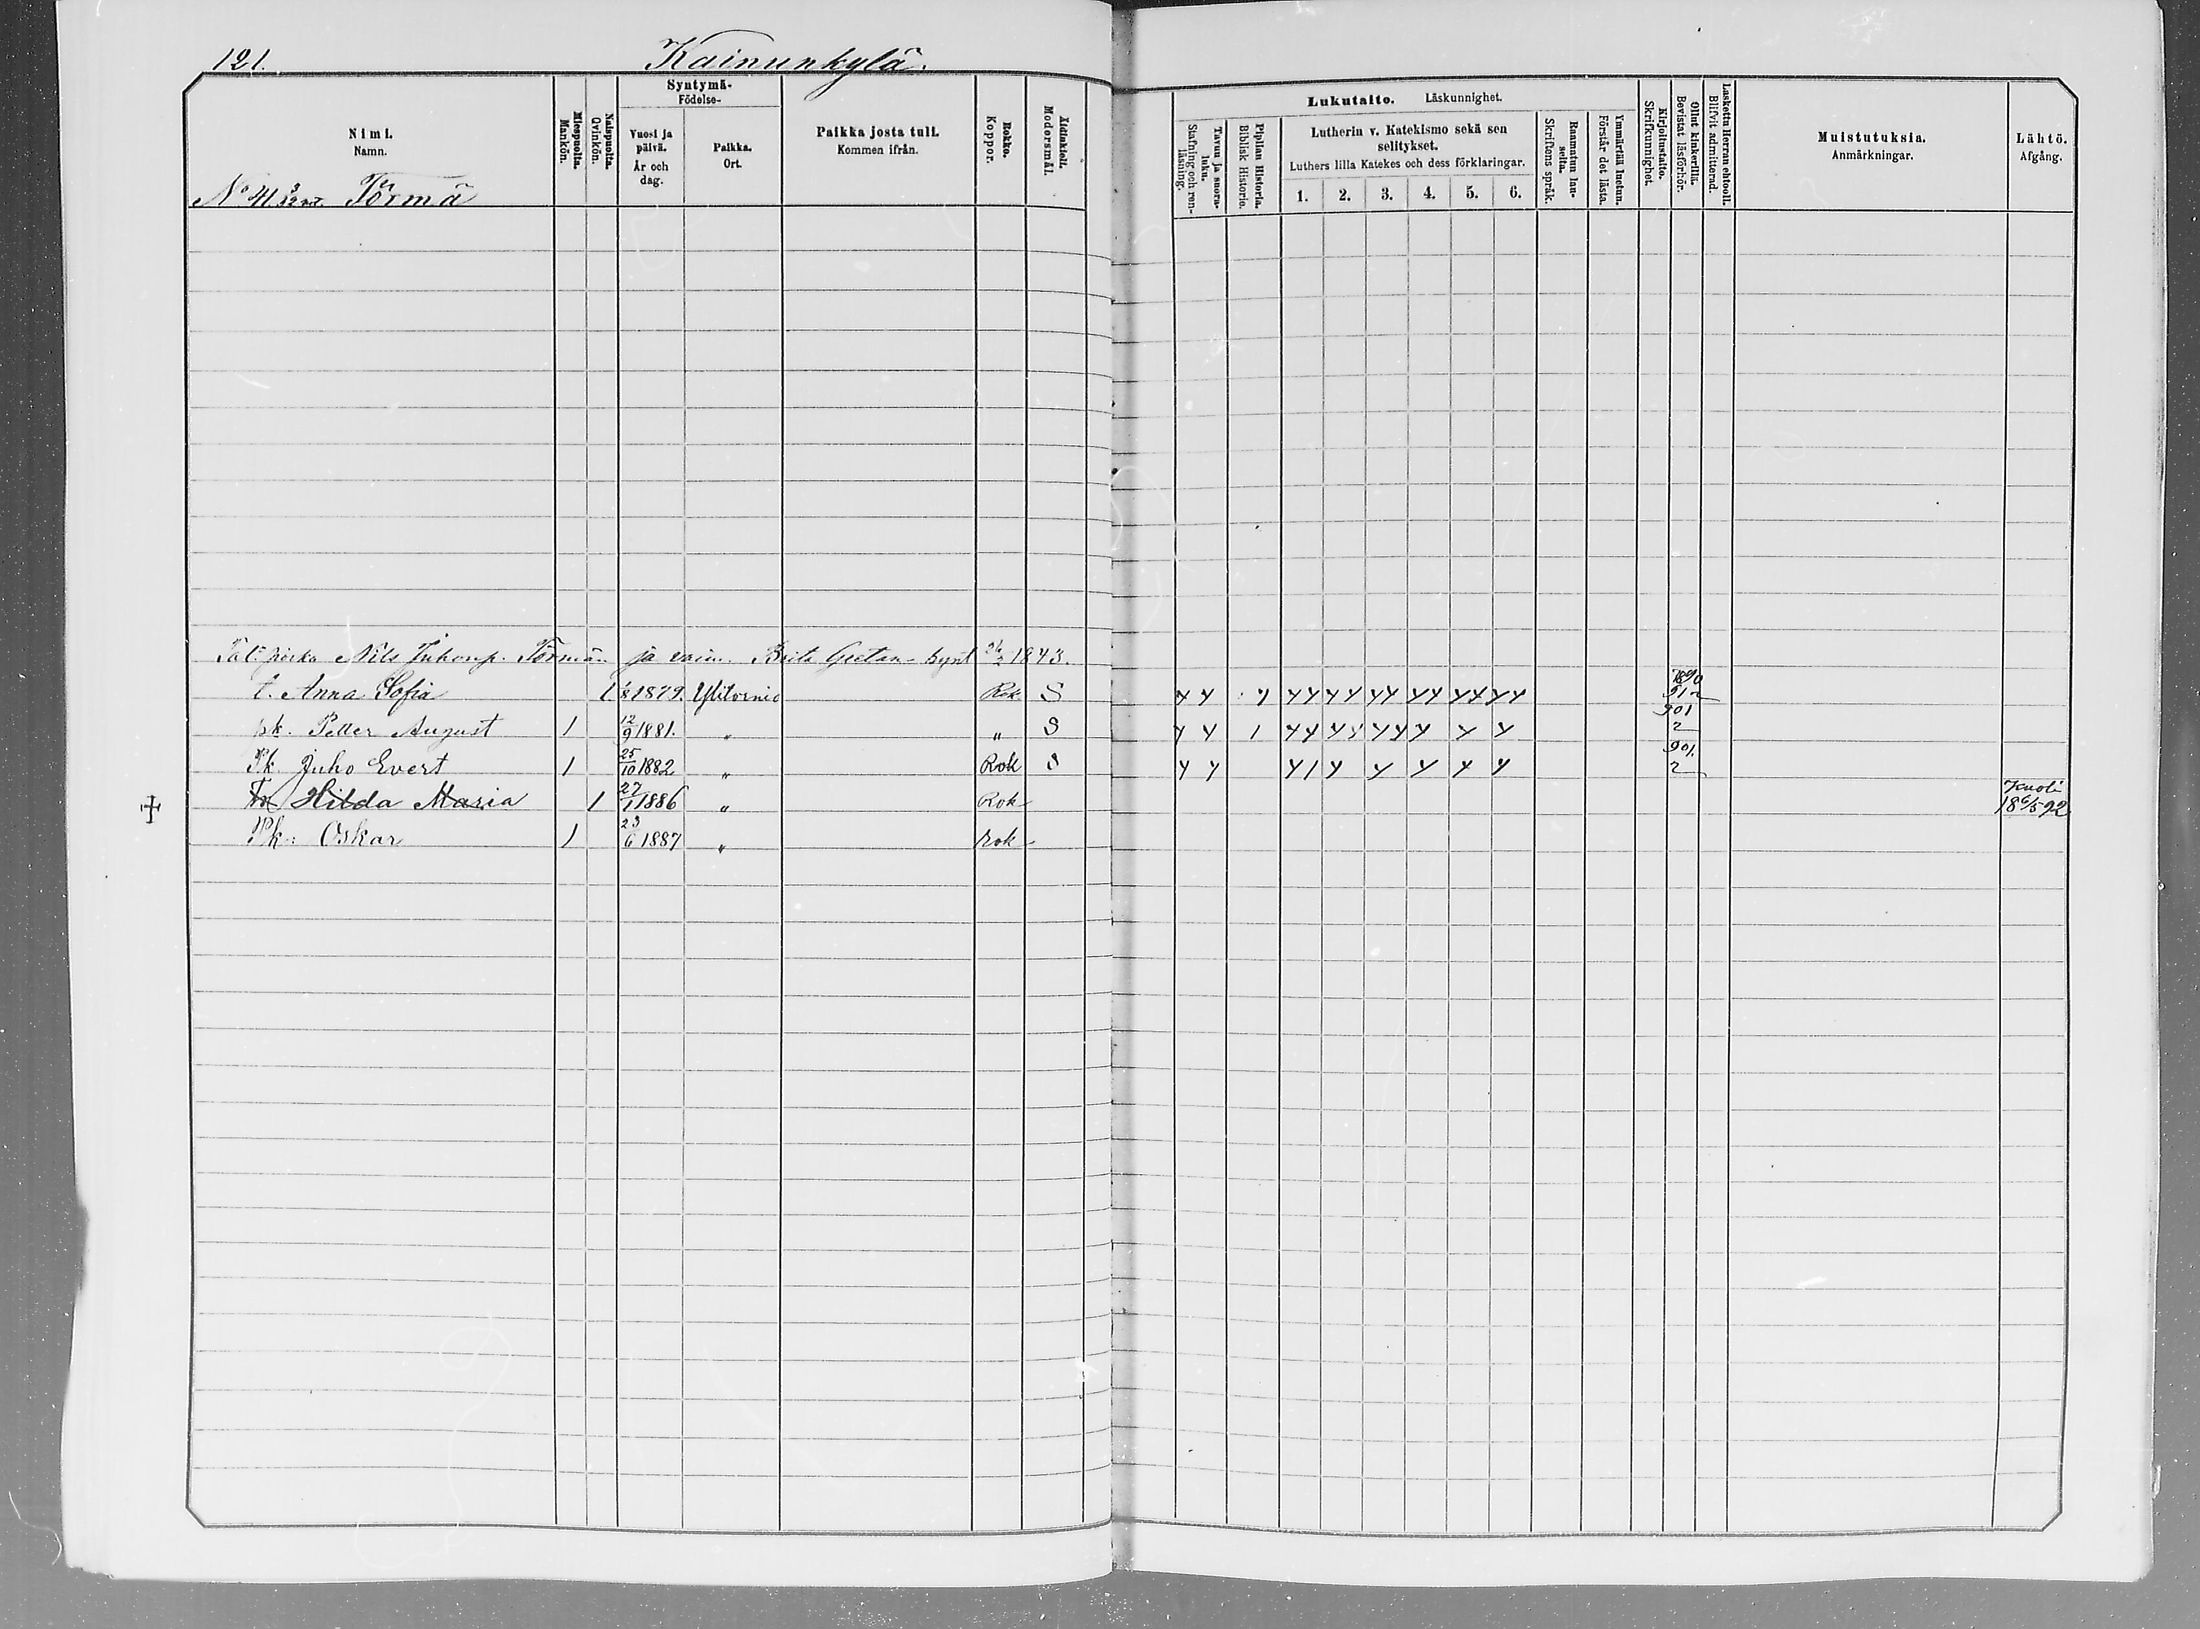 121. Kainunkylä.
Nimi.
Namn.
Miespuolta.
Mankön.
Naispuolta.
Qvinkön.
Syntymä-
Födelse-
Vuosi ja
päivä.
År och
dag.
Paikka.
Ort.
Paikka josta tuli.
Kommen ifrån.
Rokko.
Koppor.
Äidinkieli.
Modersmål.
Lukutaito. Läskunnighet.
Tavuu ja suora-
luku.
Stafning och ren-
läsning.
Piplian Historia.
Biblisk Historie.
Lutherin v. Katekismo sekä sen
selitykset.
Luthers lilla Katekes och dess förklaringar.
1. 2. 3. 4. 5. 6.
Raamatun lau-
seita.
Skriftens språk.
Ymmärtää luetun.
Förstår det lästa.
Kirjoitustaito.
Skrifkunnighet.
Ollut kinkerillä.
Bevistat läsförhör.
Laskettu Herran ehtooll.
Blifvit admitterad.
Muistutuksia.
Anmärkningar.
Lähtö.
Afgång.
No 41 Törmä
Nils Juhonp. Törmän ja vaim. Brita Gretan synt 1843.
t. Anna Sofia 1 1/8 1879. Ylitornio Rok S 1890
912
pk. Petter August 1 12/9 1881. " " S 901
2
Pk Juho Evert 1 25/10 1882 " Rok S 901.
2
Hilda Maria 1 27/1 1886 " Rok Kuoli
18 6/5 92
Pk: Oskar 1 23/6 1887 " rok